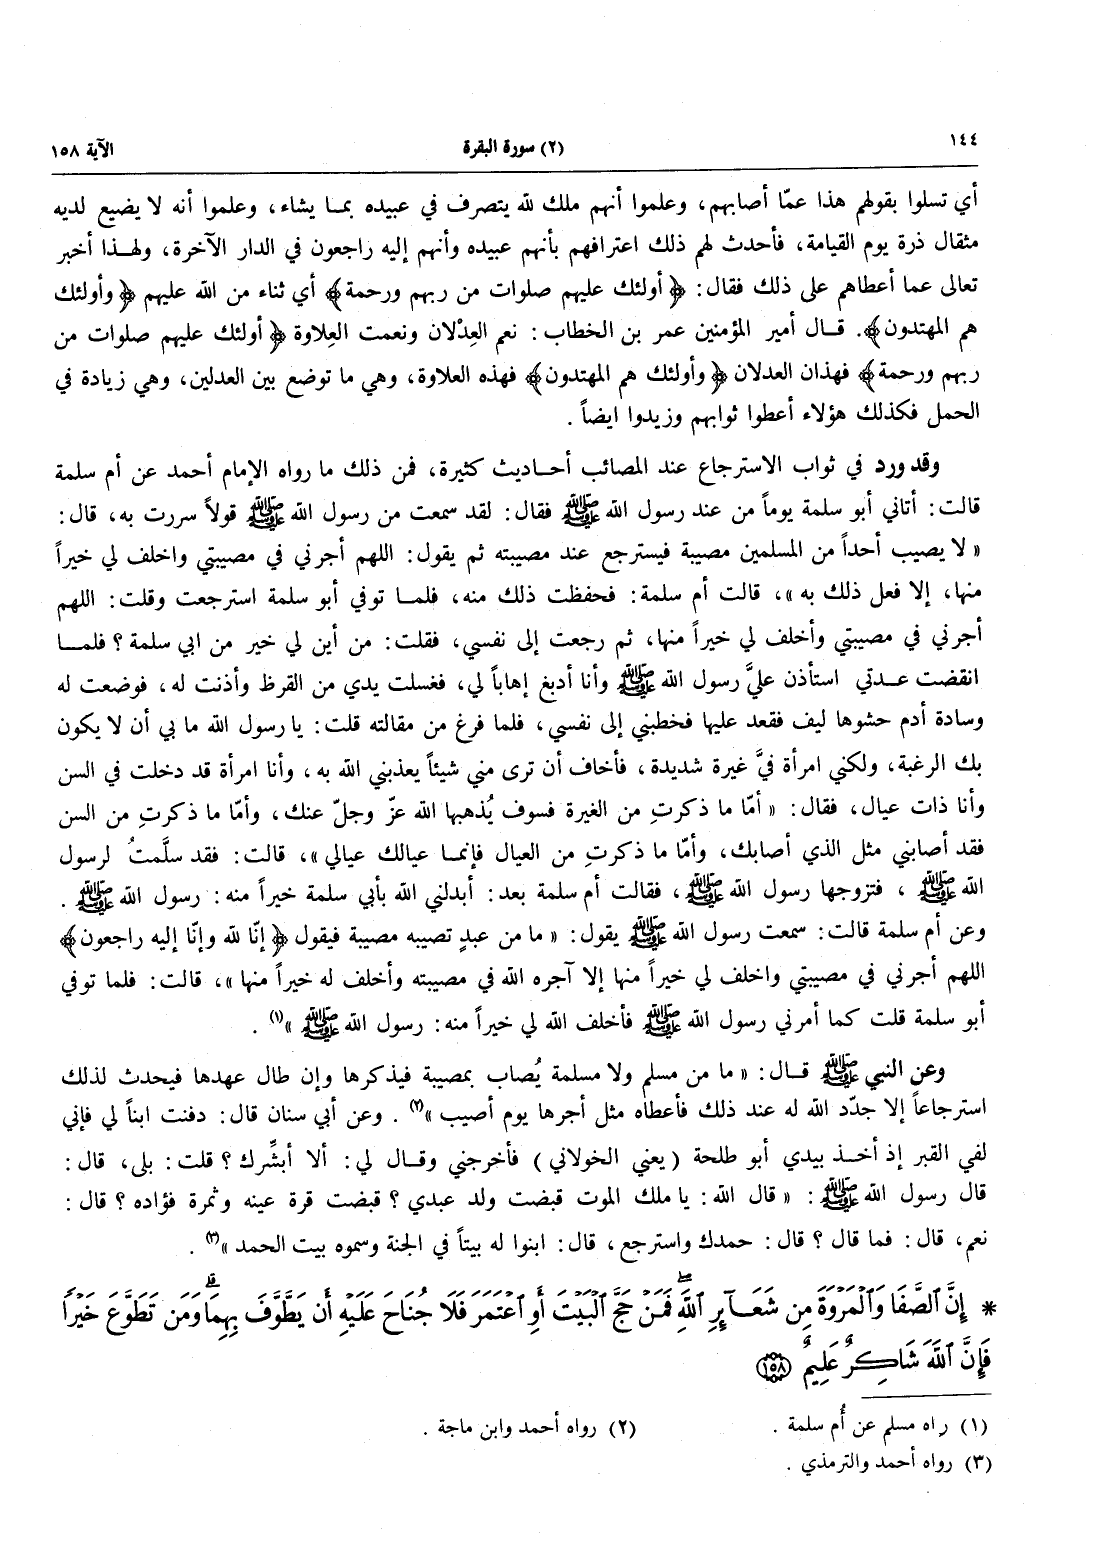 ١٤٤
(٢) سورة البقرة
الآية ١٥٨
أي تسلوا بقولهم هذا عمّا أصابهم، وعلموا أنهم ملك لله يتصرف في عبيده بمـا يشاء، وعلموا أنه لا يضيع لديه
مثقال ذرة يوم القيامة، فأحدث لهم ذلك اعترافهم بأنهم عبيده وأنهم إليه راجعون في الدار الآخرة، ولهـذا أخبر
تعالى عما أعطاهم على ذلك فقال: ﴿أولئك عليهم صلوات من ربهم ورحمة﴾ أي ثناء من الله عليهم ﴿وأولئك
هم المهتدون﴾. قـال أمير المؤمنين عمر بن الخطاب: نعم العِدْلان ونعمت العِلاوة ﴿أولئك عليهم صلوات من
ربهم ورحمة﴾ فهذان العدلان ﴿وأولئك هم المهتدون﴾ فهذه العلاوة، وهي ما توضع بين العدلين، وهي زيادة في
الحمل فكذلك هؤلاء أعطوا ثوابهم وزيدوا ايضاً.
وقد ورد في ثواب الاسترجاع عند المصائب أحـاديث كثيرة، فمن ذلك ما رواه الإمام أحمد عن أم سلمة
قالت: أتاني أبو سلمة يوماً من عند رسول الله ﷺ فقال: لقد سمعت من رسول الله ﷺ قولاً سررت به، قال:
« لا يصيب أحداً من المسلمين مصيبة فيسترجع عند مصيبته ثم يقول: اللهم أجرني في مصيبتي واخلف لي خيراً
منها، إلا فعل ذلك به »، قالت أم سلمة: فحفظت ذلك منه، فلمـا توفي أبو سلمة استرجعت وقلت: اللهم
أجرني في مصيبتي وأخلف لي خيراً منها، ثم رجعت إلى نفسي، فقلت: من أين لي خير من ابي سلمة؟ فلمـا
انقضت عـدتي استأذن عليَّ رسول الله ﷺ وأنا أدبغ إهاباً لي، فغسلت يدي من القرظ وأذنت له، فوضعت له
وسادة أدم حشوها ليف فقعد عليها فخطبني إلى نفسي، فلما فرغ من مقالته قلت: يا رسول الله ما بي أن لا يكون
بك الرغبة، ولكني امرأة فيَّ غيرة شديدة، فأخاف أن ترى مني شيئاً يعذبني الله به، وأنا امرأة قد دخلت في السن
وأنا ذات عيال، فقال: « أمّا ما ذكرتِ من الغيرة فسوف يُذهبها الله عزّ وجلّ عنك، وأمّا ما ذكرتِ من السن
فقد أصابني مثل الذي أصابك، وأمّا ما ذكرتِ من العيال فإنمـا عيالك عيالي »، قالت: فقد سلَّمتُ لرسول
الله ﷺ، فتزوجها رسول الله ﷺ، فقالت أم سلمة بعد: أبدلني الله بأبي سلمة خيراً منه: رسول الله ﷺ.
وعن أم سلمة قالت: سمعت رسول الله ﷺ يقول: « ما من عبدٍ تصيبه مصيبة فيقول ﴿إنّا لله وإنّا إليه راجعون﴾
اللهم أجرني في مصيبتي واخلف لي خيراً منها إلا آجره الله في مصيبته وأخلف له خيراً منها »، قالت: فلما توفي
أبو سلمة قلت كما أمرني رسول الله ﷺ فأخلف الله لي خيراً منه: رسول الله ﷺ »(١).
وعن النبي ﷺ قـال: « ما من مسلم ولا مسلمة يُصاب بمصيبة فيذكرها وإن طال عهدها فيحدث لذلك
استرجاعاً إلا جدّد الله له عند ذلك فأعطاه مثل أجرها يوم أصيب »(٢). وعن أبي سنان قال: دفنت ابناً لي فإني
لفي القبر إذ أخـذ بيدي أبو طلحة (يعني الخولاني) فأخرجني وقـال لي: ألا أبشِّرك؟ قلت: بلى، قال:
قال رسول الله ﷺ: « قال الله: يا ملك الموت قبضت ولد عبدي؟ قبضت قرة عينه وثمرة فؤاده؟ قال:
نعم، قال: فما قال؟ قال: حمدك واسترجع، قال: ابنوا له بيتاً في الجنة وسموه بيت الحمد »(٣).
* إِنَّ ٱلصَّفَا وَٱلْمَرْوَةَ مِن شَعَآئِرِ ٱللَّهِ ۖ فَمَنْ حَجَّ ٱلْبَيْتَ أَوِ ٱعْتَمَرَ فَلَا جُنَاحَ عَلَيْهِ أَن يَطَّوَّفَ بِهِمَا ۚ وَمَن تَطَوَّعَ خَيْرًا
فَإِنَّ ٱللَّهَ شَاكِرٌ عَلِيمٌ ١٥٨
(١) رواه مسلم عن أُم سلمة.
(٢) رواه أحمد وابن ماجة.
(٣) رواه أحمد والترمذي.